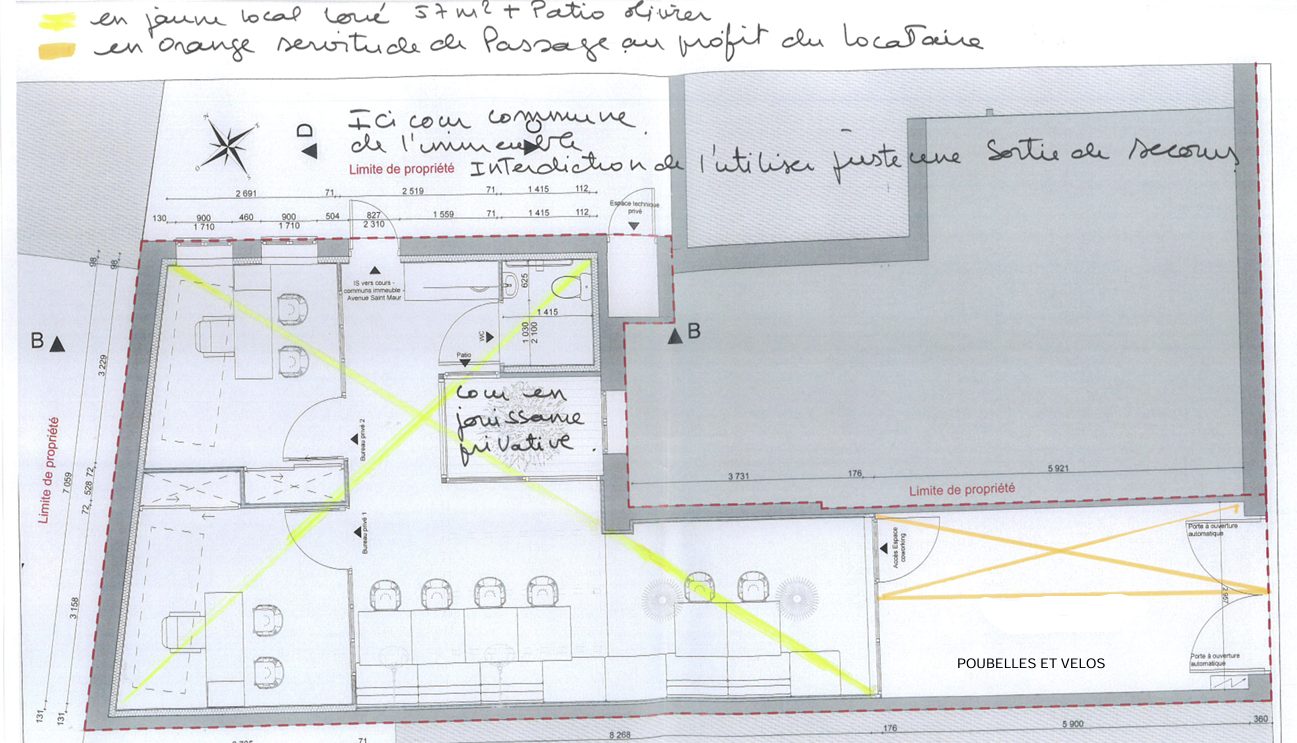 en jaune local loué 57 m² + Patio olivier
en orange servitude de Passage au profit du locataire
Ici cour commune
de l'immeuble
Interdiction de l'utiliser juste une Sortie de secours
D
Limite de propriété
2 691 71 2 519 71 1 415 112
130 900 460 900 504 827 1 559 71 1 415 112
1 710 1 710 2 310
Espace technique
privé
98 98
IS vers cours -
communs immeuble -
Avenue Saint Maur
625
1 415
1 030
2 100
WC
Patio
B
B
3 229
Limite de propriété
7 059
72 528 72
3 158
131 131
cour en
jouissance
privative.
Bureau privé 2
Bureau privé 1
3 731 176 5 921
Limite de propriété
Accès Espace
coworking
Porte à ouverture
automatique
2 967
Porte à ouverture
automatique
POUBELLES ET VELOS
71 8 268 176 5 900 360